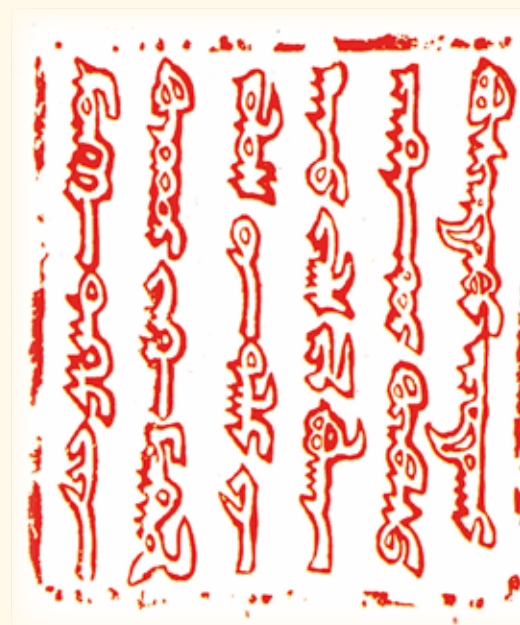 ᠮᠥᠩᠬᠡ ᠲᠩᠷᠢ ᠶᠢᠨ
ᠬᠦᠴᠦᠨᠳᠦᠷ ᠶᠡᠬᠡ ᠮᠣᠩᠭᠣᠯ
ᠤᠯᠤᠰᠤᠨ ᠳᠠᠯᠠᠢ ᠶᠢᠨ
ᠬᠠᠨᠤ ᠵᠷᠯᠢᠭ ᠢᠯ ᠪᠤᠯᠭᠠ
ᠢᠷᠭᠡᠨᠳᠦᠷ ᠬᠦᠷᠪᠡᠰᠦ
ᠪᠦᠰᠢᠷᠡᠲᠦᠭᠡᠢ ᠠᠶᠤᠲᠤᠭᠠᠢ